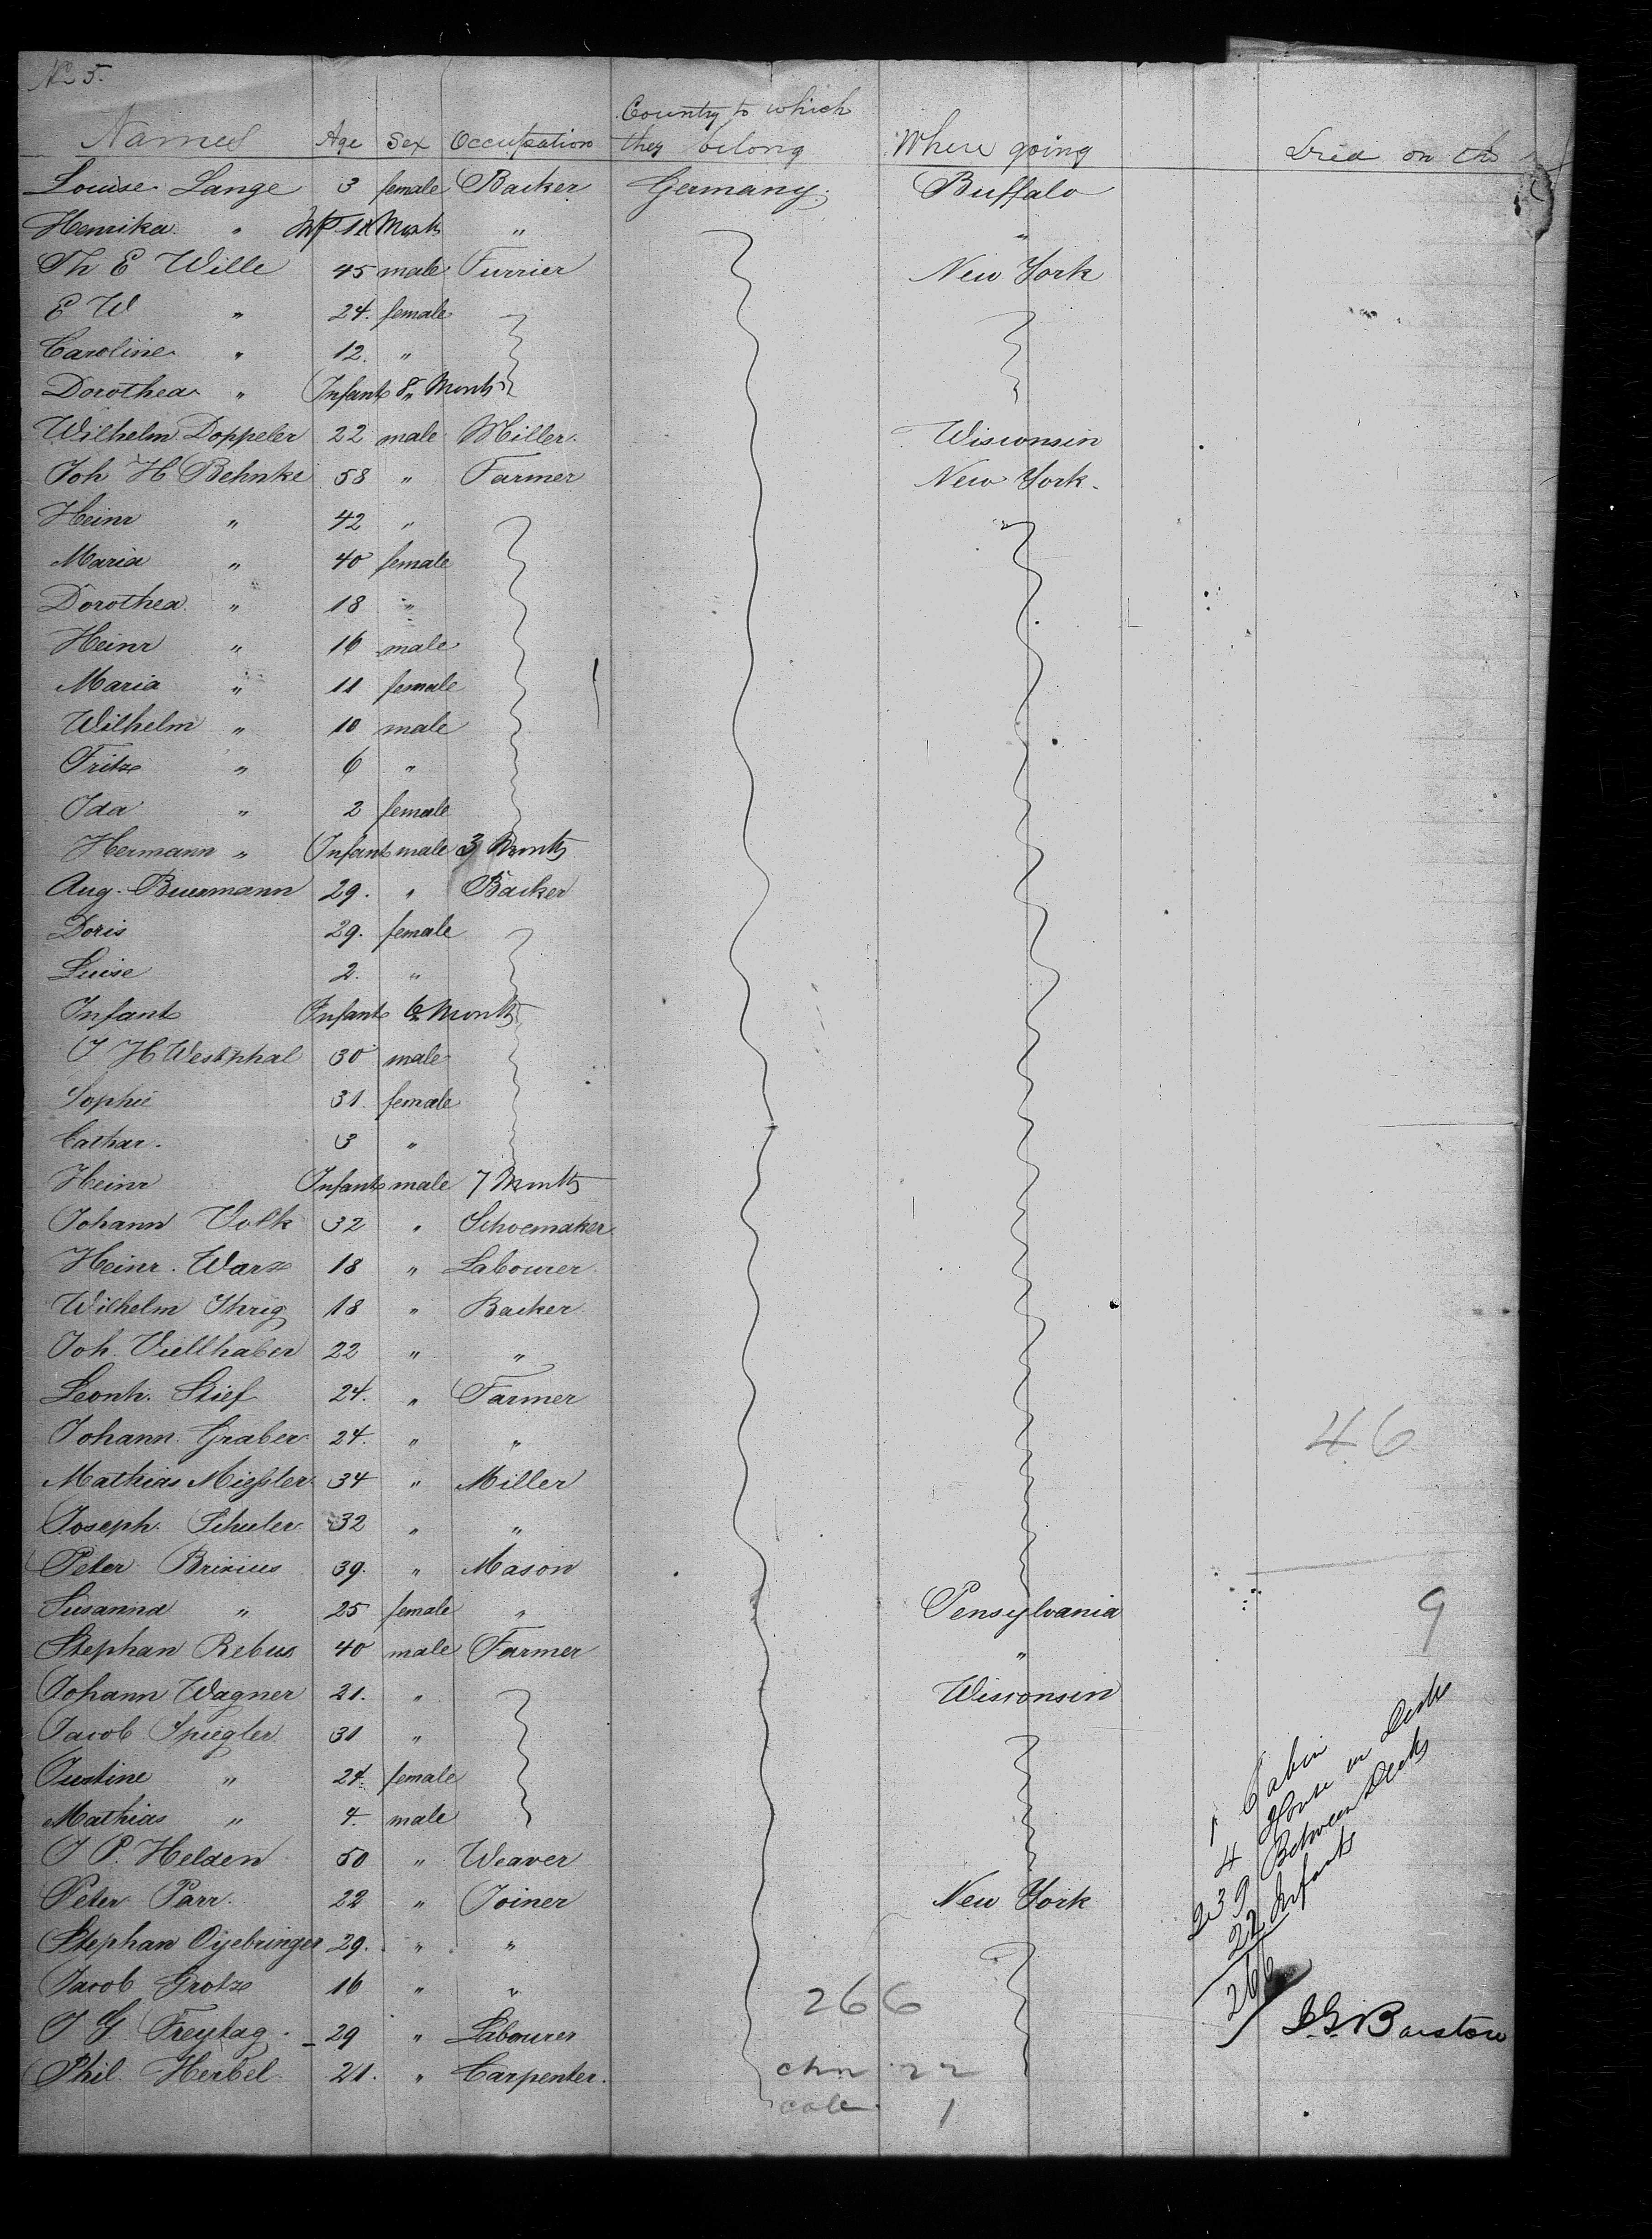 No 5.
Names Age Sex Occupation Country to which they belong Where going Died on the
Louise Lange 3 female Backer Germany. Buffalo
Henrika " Inft 11 Month " "
Th E Wille 45 male Furrier New York
E W " 24. female
Caroline " 12. "
Dorothea " Infant 8 Month
Wilhelm Doppeler 22 male Miller. Wisconsin
Joh H Behnke 58 " Farmer New York.
Heinr " 42 "
Maria " 40 female
Dorothea " 18 "
Heinr " 16 male
Maria " 11 female
Wilhelm " 10 male
Fritz " 6 "
Ida " 2 female
Hermann " Infant male 3 Month
Aug. Buermann 29. " Backer
Doris 29. female
Luise 2. "
Infant Infant 6 Month
J H Westphal 30 male
Sophie 31. female
Cathar. 3 "
Heinr Infant male 7 Month
Johann Volk 32 " Schoemaker
Heinr. Warx 18 " Labourer.
Wilhelm Ihrig 18 " Backer
Joh. Viellhaber 22 " "
Leonh. Stief 24. " Farmer
Johann Graber 24. " "
46
Mathias Missler 34 " Miller
Joseph Schuler 32 " "
Peter Brixius 39. " Mason
Susanna " 25 female " Pensylvania
9
Stephan Rebus 40 male Farmer "
Johann Wagner 21. " Wisconsin
Jacob Spiegler 31 "
Justine " 24. female
Mathias " 4. male
J P. Helden 50 " Weaver
Peter Parr. 22 " Joiner New York
Stephan Oyebringer 29. " "
Jacob Grotz 16 " "
J G Freytag. 29 " Labourer
Phil. Herbel 21. " Carpenter.
1 Cabin
4 House on Deck
239 Between Decks
22 Infants
266
266
chn 22
1
Barstow